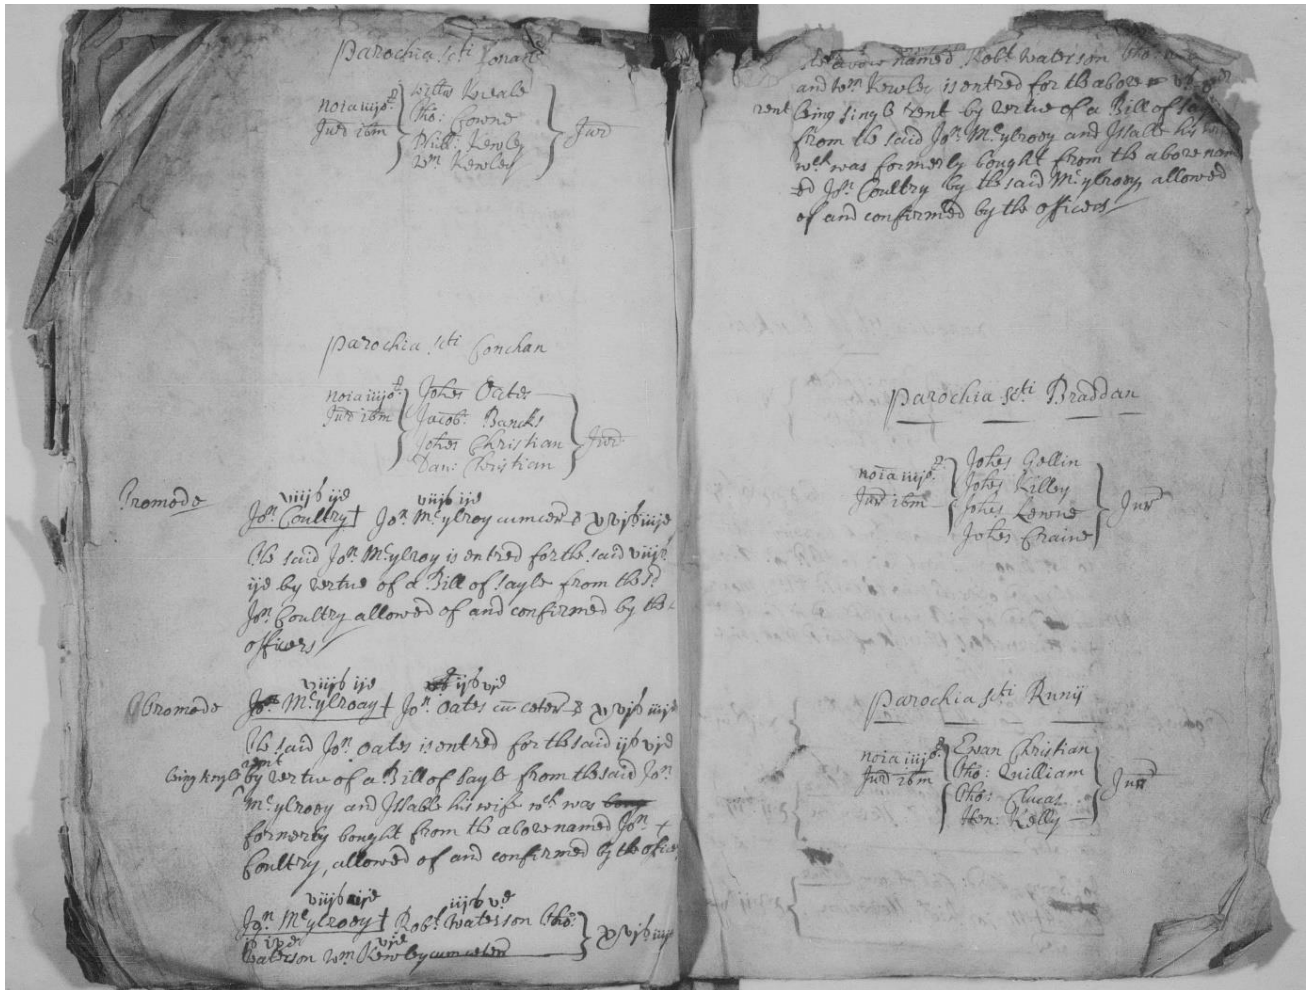 Parochia Scti Lonani
noia iiijor Jur ibm
Willm Keale
Tho: Cowne
Phill: Kewley
Wm Kewley
Jur
Parochia Scti Conchan
noia iiijor Jur ibm
Johes Oates
Jacob: Bancks
Johes Christian
Dan: Christian
Jur
Tromode
viijs ijd viijs ijd
Jon Coultry † Jon Mcylroy cum ceter xvjs iiijd
The said Jon Mcylroy is entred for the said viijs
ijd by vertue of a Bill of Sayle from the sd
Jon Coultry allowed of and confirmed by the
officers
Tromode
viijs ijd ijs vjd
Jon Mcylroay † Jon Oates cū ceter xvjs iiijd
The said Jon Oates is entred for the said ijs vjd
being single rent by vertue of a Bill of Sayle from the said Jon
Mcylrooy and Issable his wife wch was boug
formerly bought from the above named Jon
Coultry, allowed of and confirmed by the offic
viijs ijd iijs vd
Jon Mcylrooy † Robt Waterson Tho:
Waterson Wm Kewley cum ceter xvjs iiijd
vjd
The above named Robt Waterson Tho:
and Wm Kewley is entred for the above
rent being single rent by vertue of a Bill of
from the said Jon Mcylrooy and Issable his wife
wch was formerly bought from the above nam
ed Jon Coultry by the said Mcylrooy allowed
of and confirmed by the officers
Parochia Scti Braddan
noia iiijor Jur ibm
Johes Gellin
Johes Killey
Johes Kewne
Johes Craine
Jur
Parochia Scti Runij
noia iiijor Jur ibm
Ewan Christian
Tho: Quilliam
Tho: Clucas
Hen: Kelly
Jur